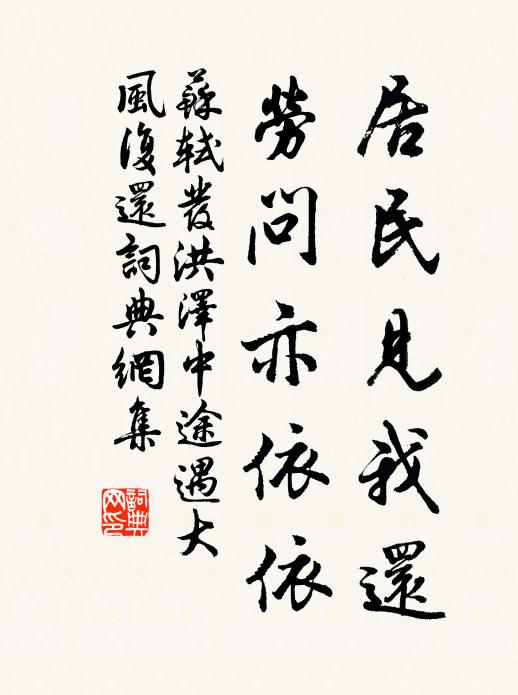 居民見我還
勞問亦依依
蘇軾發洪澤中途遇大
風復還詞典網集
詞典網印